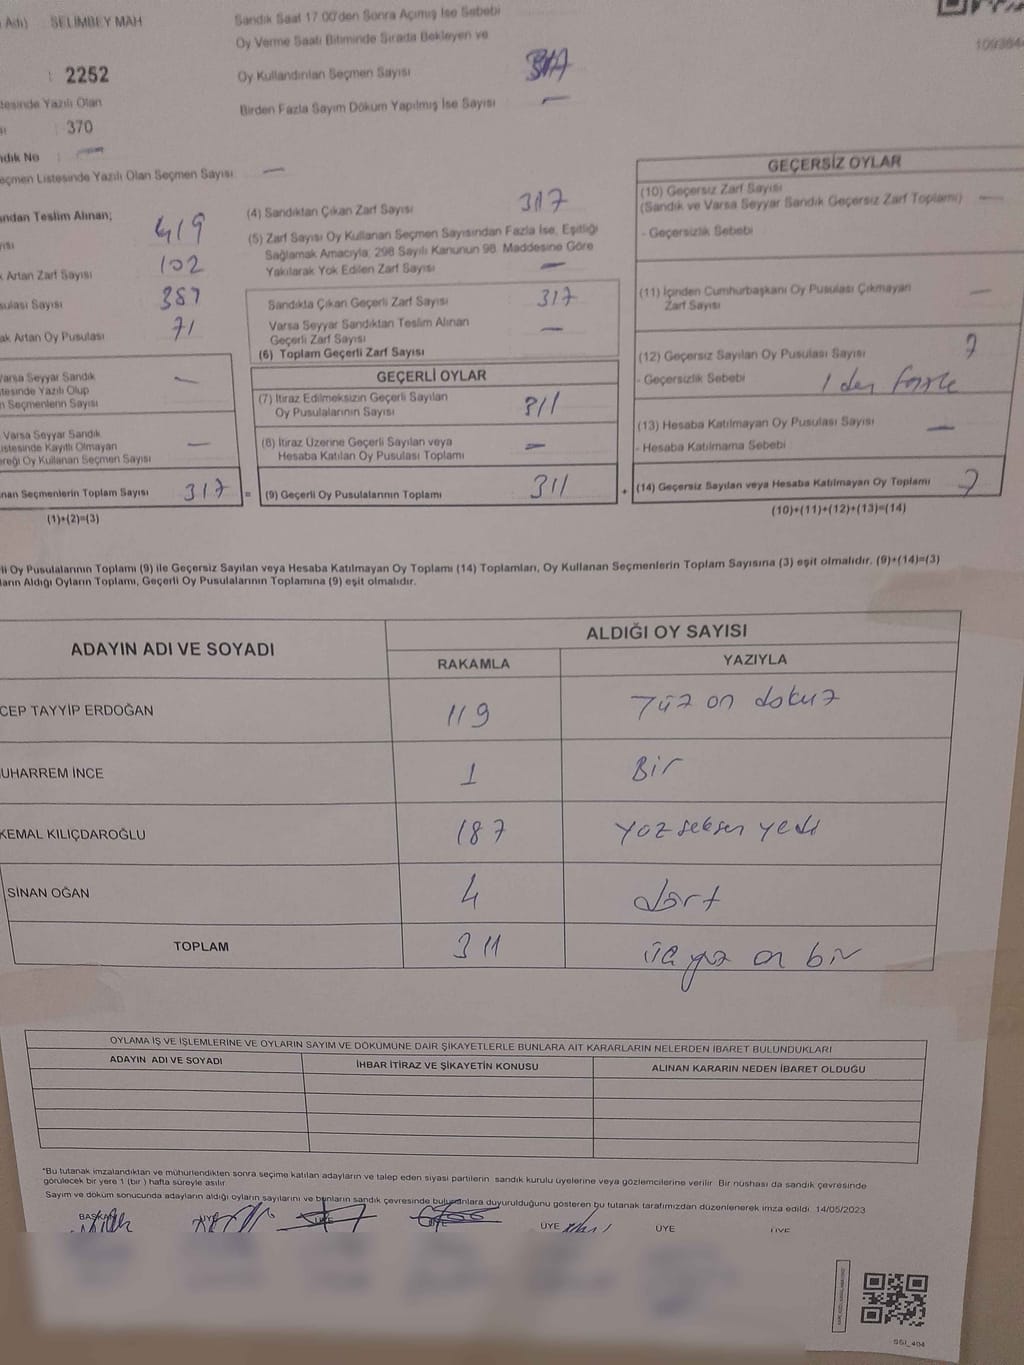 Adı) SELİMBEY MAH
Sandık Saat 17 00'den Sonra Açımış İse Sebebi
Oy Verme Saati Bitiminde Sırada Bekleyen ve
: 2252
Oy Kullandırılan Seçmen Sayısı
tesinde Yazılı Olan
: 370
Birden Fazla Sayım Döküm Yapılmış İse Sayısı —
ndık No : —
eçmen Listesinde Yazılı Olan Seçmen Sayısı —
ından Teslim Alınan;
ısı 419
k Artan Zarf Sayısı 102
sulası Sayısı
ak Artan Oy Pusulası 71
Varsa Seyyar Sandık
tesinde Yazılı Olup
n Seçmenlerin Sayısı —
Varsa Seyyar Sandık
istesinde Kayıtlı Olmayan
ereği Oy Kullanan Seçmen Sayısı —
nan Seçmenlerin Toplam Sayısı 317 =
(1)+(2)=(3)
(4) Sandıktan Çıkan Zarf Sayısı 317
(5) Zarf Sayısı Oy Kullanan Seçmen Sayısından Fazla İse, Eşitliği
Sağlamak Amacıyla, 298 Sayılı Kanunun 98. Maddesine Göre
Yakılarak Yok Edilen Zarf Sayısı —
Sandıkta Çıkan Geçerli Zarf Sayısı 317
Varsa Seyyar Sandıktan Teslim Alınan
Geçerli Zarf Sayısı —
(6) Toplam Geçerli Zarf Sayısı
GEÇERLİ OYLAR
(7) İtiraz Edilmeksizin Geçerli Sayılan
Oy Pusulalarının Sayısı 311
(8) İtiraz Üzerine Geçerli Sayılan veya
Hesaba Katılan Oy Pusulası Toplamı —
(9) Geçerli Oy Pusulalarının Toplamı 311 +
GEÇERSİZ OYLAR
(10) Geçersiz Zarf Sayısı
(Sandık ve Varsa Seyyar Sandık Geçersiz Zarf Toplamı) —
- Geçersizlik Sebebi
(11) İçinden Cumhurbaşkanı Oy Pusulası Çıkmayan
Zarf Sayısı —
(12) Geçersiz Sayılan Oy Pusulası Sayısı 7
- Geçersizlik Sebebi 1 den fazla
(13) Hesaba Katılmayan Oy Pusulası Sayısı —
- Hesaba Katılmama Sebebi
(14) Geçersiz Sayılan veya Hesaba Katılmayan Oy Toplamı 7
(10)+(11)+(12)+(13)=(14)
li Oy Pusulalarının Toplamı (9) ile Geçersiz Sayılan veya Hesaba Katılmayan Oy Toplamı (14) Toplamları, Oy Kullanan Seçmenlerin Toplam Sayısına (3) eşit olmalıdır. (9)+(14)=(3)
ların Aldığı Oyların Toplamı, Geçerli Oy Pusulalarının Toplamına (9) eşit olmalıdır.
ADAYIN ADI VE SOYADI
ALDIĞI OY SAYISI
RAKAMLA YAZIYLA
CEP TAYYİP ERDOĞAN 119 Yüz on dokuz
UHARREM İNCE 1 Bir
KEMAL KILIÇDAROĞLU 187 yoz seksen yedi
SİNAN OĞAN 4 dört
TOPLAM 311 üç yüz on bir
OYLAMA İŞ VE İŞLEMLERİNE VE OYLARIN SAYIM VE DÖKÜMÜNE DAİR ŞİKAYETLERLE BUNLARA AİT KARARLARIN NELERDEN İBARET BULUNDUKLARI
ADAYIN ADI VE SOYADI İHBAR İTİRAZ VE ŞİKAYETİN KONUSU ALINAN KARARIN NEDEN İBARET OLDUĞU
*Bu tutanak imzalandıktan ve mühürlendikten sonra seçime katılan adayların ve talep eden siyasi partilerin sandık kurulu üyelerine veya gözlemcilerine verilir. Bir nüshası da sandık çevresinde
görülecek bir yere 1 (bir) hafta süreyle asılır.
Sayım ve döküm sonucunda adayların aldığı oyların sayılarını ve bunların sandık çevresinde bulunanlara duyurulduğunu gösteren bu tutanak tarafımızdan düzenlenerek imza edildi. 14/05/2023
BAŞKAN ÜYE ÜYE ÜYE ÜYE ÜYE ÜYE